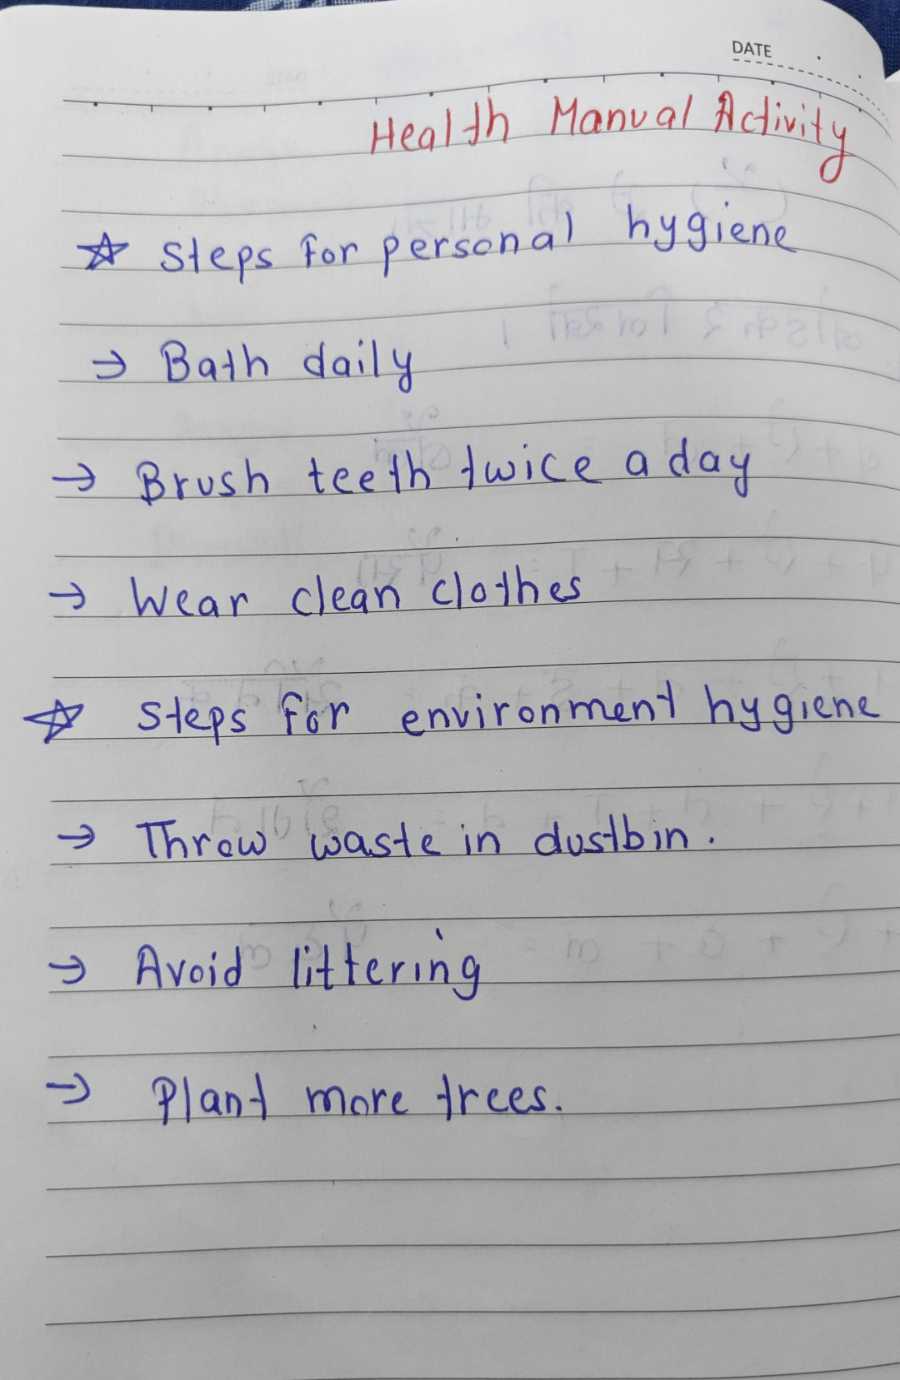 DATE
Health Manual Activity
☆ Steps for personal hygiene
→ Bath daily
→ Brush teeth twice a day
→ Wear clean clothes
☆ Steps for environment hygiene
→ Throw waste in dustbin.
→ Avoid littering
→ Plant more trees.